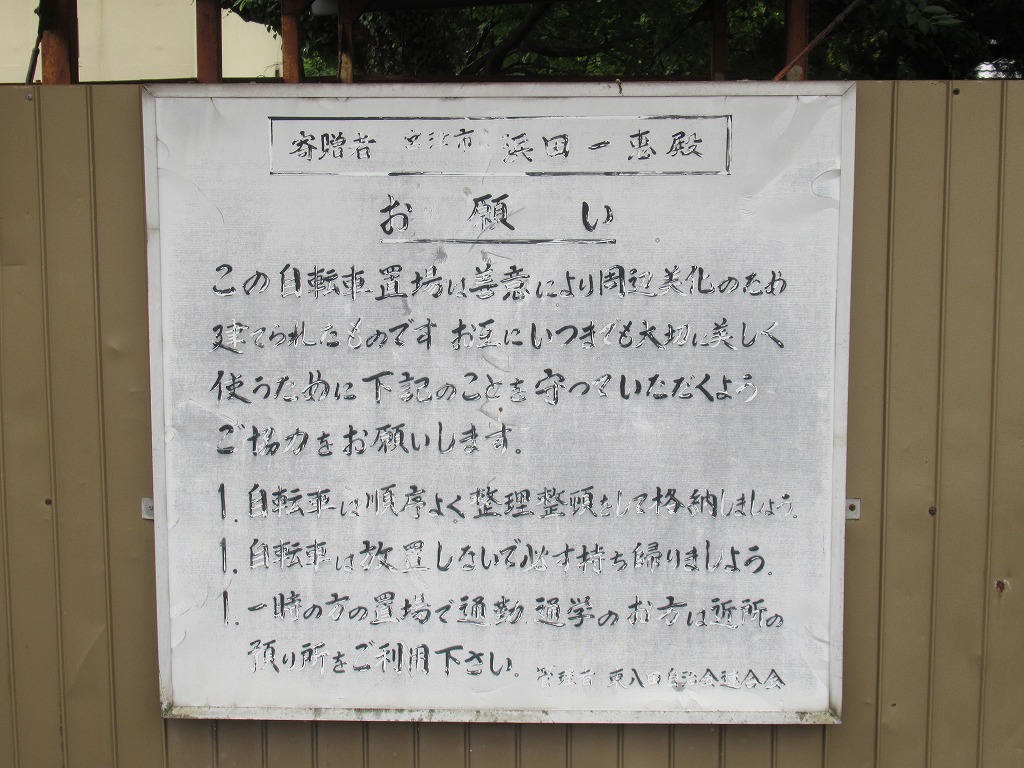 寄贈者 市 浜田一恵殿
お願い
この自転車置場は善意により周辺美化のため
建てられたものです お互にいつまでも大切に美しく
使うために下記のことを守っていただくよう
ご協力をお願いします。
1. 自転車は順序よく整理整頓をして格納しましょう。
1. 自転車は放置しないで必ず持ち帰りましよう。
1. 一時の方の置場で通勤 通学のお方は近所の
預り所をご利用下さい。
管理者 東八田自治会連合会